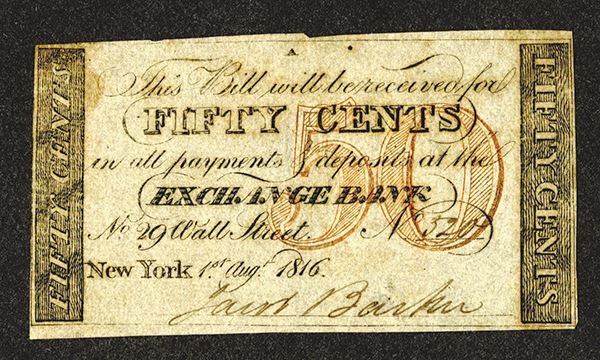 A
This Bill will be received for
FIFTY CENTS
50
in all payments & deposits at the
EXCHANGE BANK
No 29 Wall Street. No
New York 1st Augt 1816.
Jacob Barker
FIFTY CENTS
FIFTY CENTS